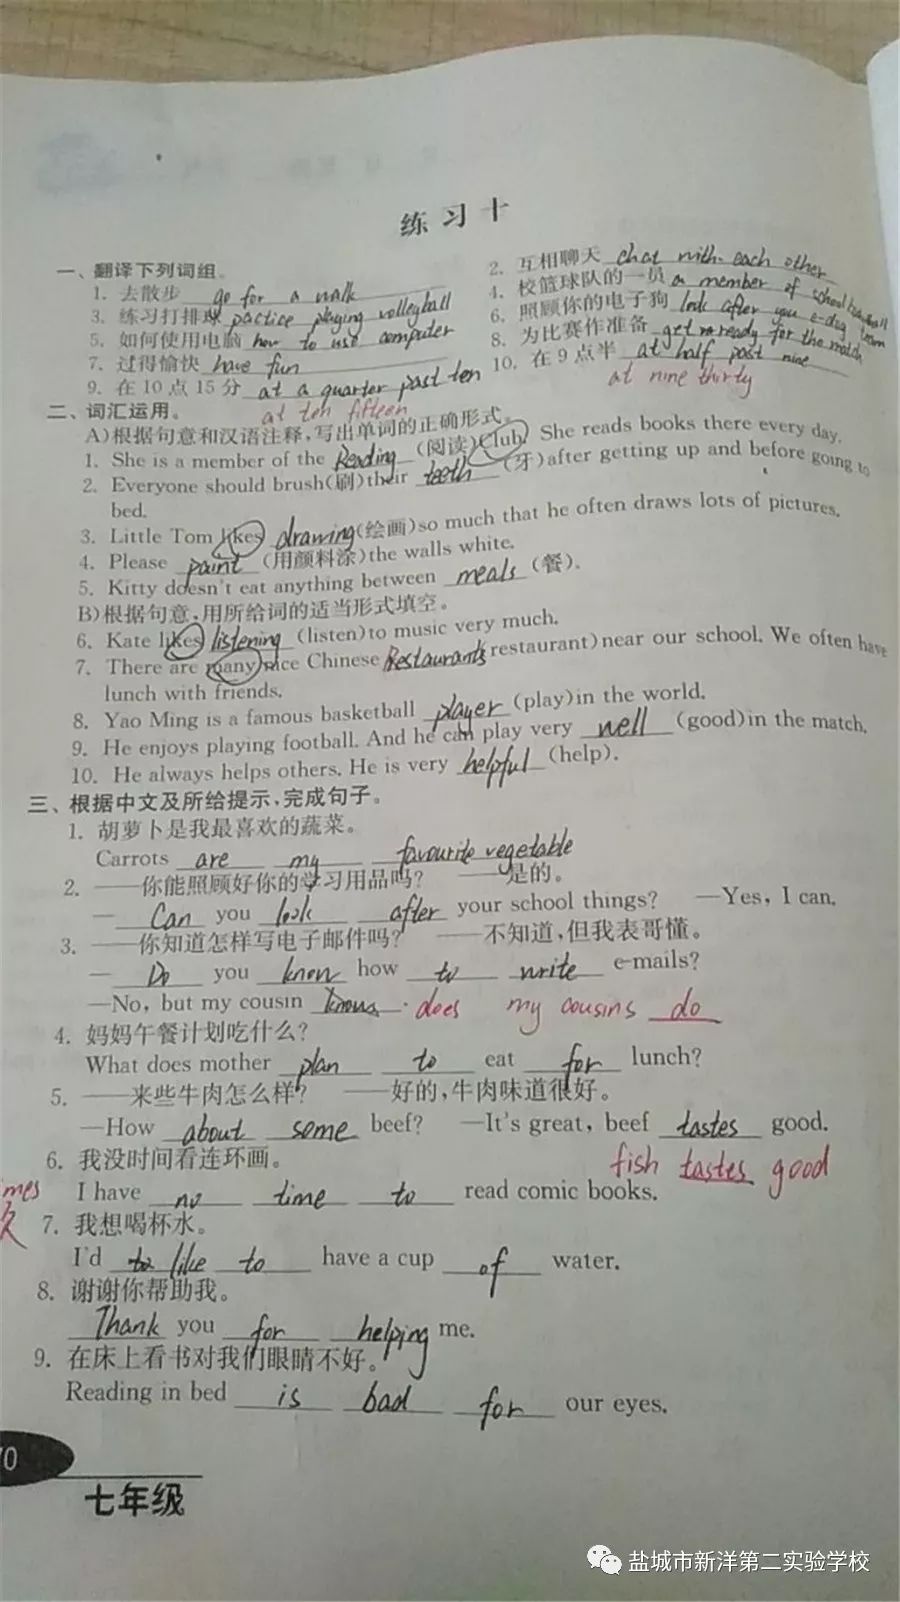 练习十
一、翻译下列词组。
1. 去散步 go for a walk
2. 互相聊天 chat with each other
3. 练习打排球 pactice playing volleyball
4. 校篮球队的一员 a member of school basketball team
5. 如何使用电脑 how to use computer
6. 照顾你的电子狗 look after you e-dog
7. 过得愉快 have fun
8. 为比赛作准备 get ready for the match
9. 在10点15分 at a quarter past ten
at ten fifteen
10. 在9点半 at half past nine
at nine thirty
二、词汇运用。
A)根据句意和汉语注释,写出单词的正确形式。
1. She is a member of the Reading (阅读)Club. She reads books there every day.
2. Everyone should brush(刷)their teeth (牙)after getting up and before going to
bed.
3. Little Tom likes drawing(绘画)so much that he often draws lots of pictures.
4. Please paint (用颜料涂)the walls white.
5. Kitty doesn't eat anything between meals (餐).
B)根据句意,用所给词的适当形式填空。
6. Kate likes listening (listen)to music very much.
7. There are many nice Chinese Restaurants restaurant)near our school. We often have
lunch with friends.
8. Yao Ming is a famous basketball player (play)in the world.
9. He enjoys playing football. And he can play very well (good)in the match.
10. He always helps others. He is very helpful (help).
三、根据中文及所给提示,完成句子。
1. 胡萝卜是我最喜欢的蔬菜。
Carrots are my favourite vegetable
2. ——你能照顾好你的学习用品吗? ——是的。
— Can you look after your school things? —Yes, I can.
3. ——你知道怎样写电子邮件吗? ——不知道,但我表哥懂。
— Do you know how to write e-mails?
—No, but my cousin knows. does my cousins do
4. 妈妈午餐计划吃什么?
What does mother plan to eat for lunch?
5. ——来些牛肉怎么样? ——好的,牛肉味道很好。
—How about some beef? —It's great, beef tastes good.
fish tastes good
6. 我没时间看连环画。
I have no time to read comic books.
7. 我想喝杯水。
I'd like to have a cup of water.
8. 谢谢你帮助我。
Thank you for helping me.
9. 在床上看书对我们眼睛不好。
Reading in bed is bad for our eyes.
70
七年级
盐城市新洋第二实验学校